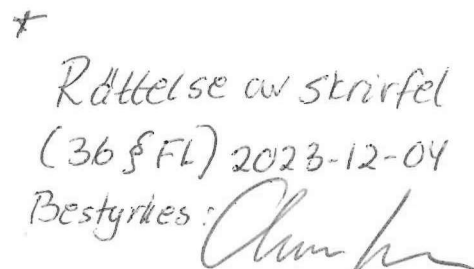 *
Rättelse av skrivfel
(36 § FL) 2023-12-04
Bestyrkes: